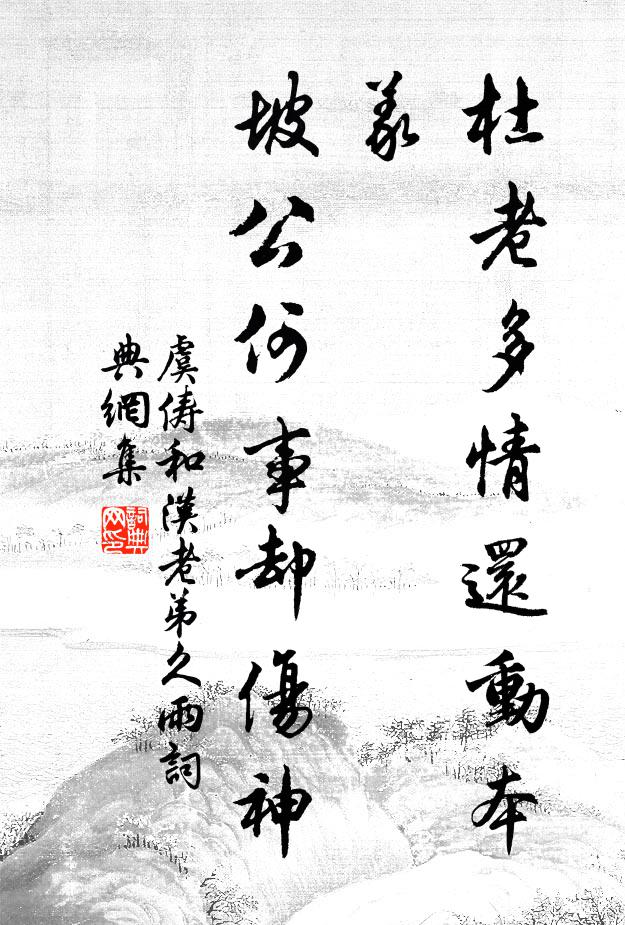 杜老多情還動本
坡公何事却傷神
虞儔和漢老弟久雨詞
典網集
詞典
网印